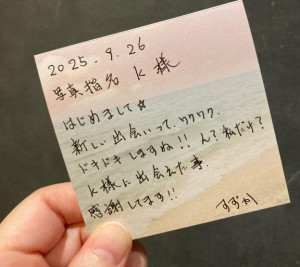 2025.9.26
写真指名 K 様
はじめまして☆
新しい出会いって、ワクワク、
ドキドキしますね!! ん? 私だけ?
K様に出会えた事、
感謝してます!!
すずか